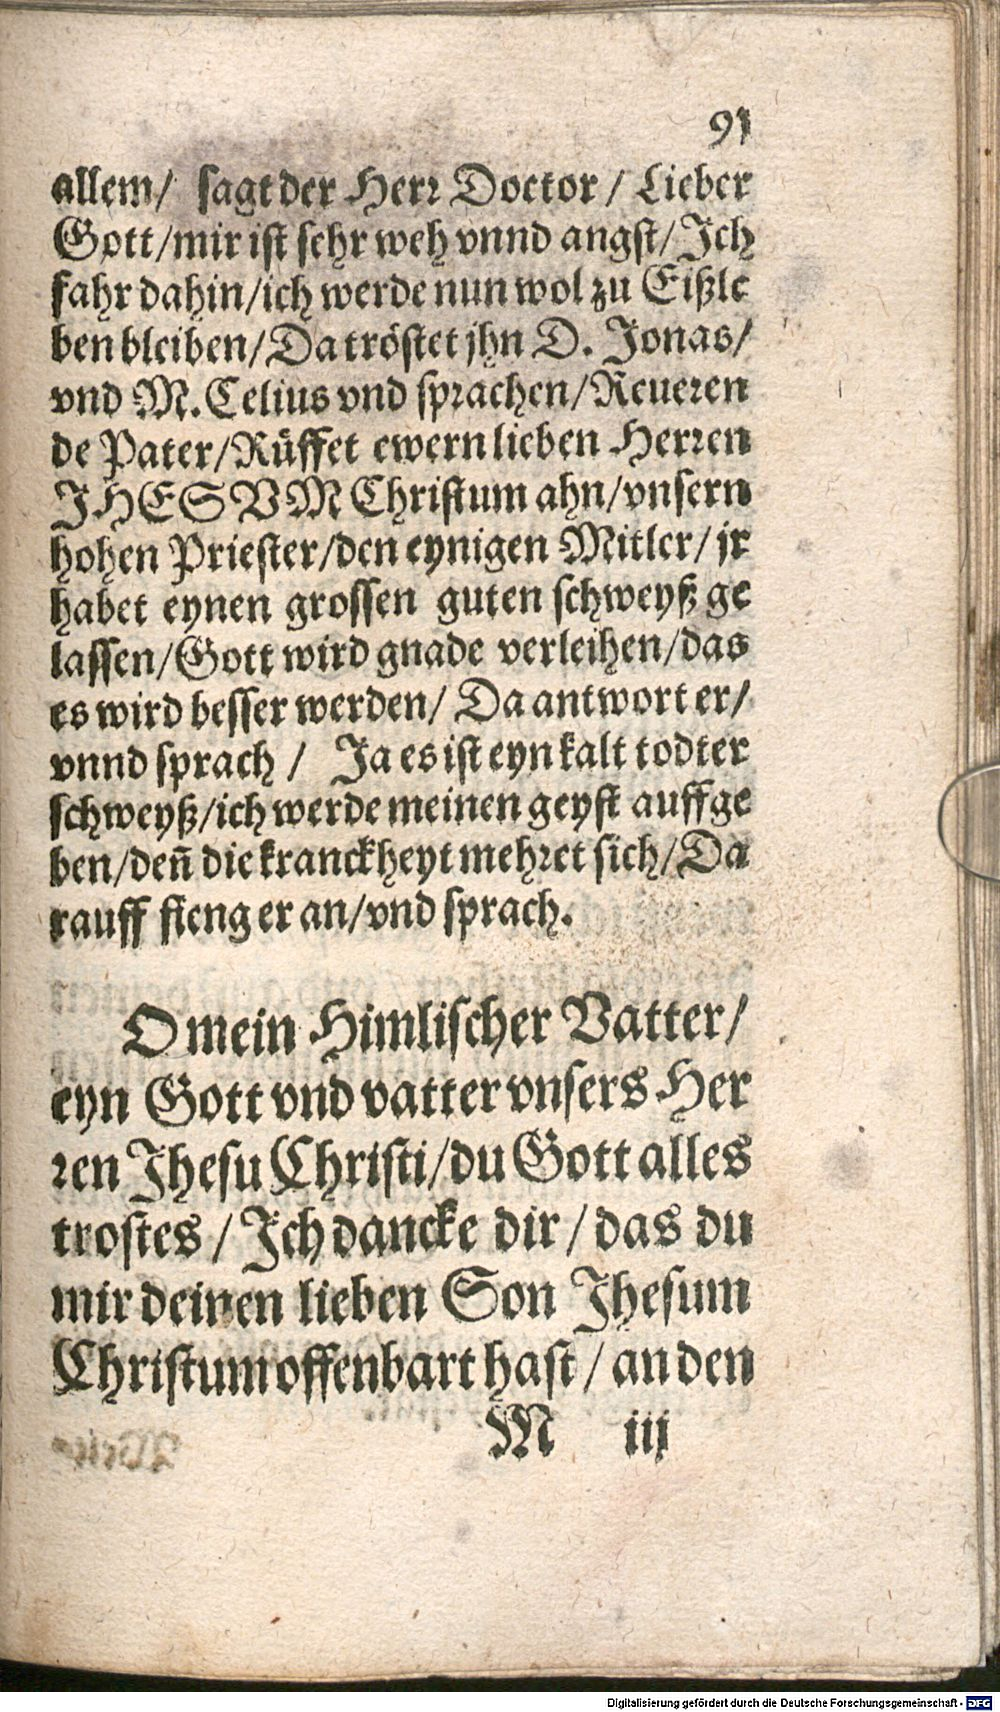 91
allem/ sagt der Herr Doctor / Lieber
Gott/mir ist sehr weh vnnd angst/Ich
fahr dahin/ich werde nun wol zu Eißle
ben bleiben/Da tröstet jhn D. Jonas/
vnd M. Celius vnd sprachen/Reueren
de Pater/Rüffet ewern lieben Herren
IHESVM Christum ahn/vnsern
hohen Priester/den eynigen Mitler/jr
habet eynen grossen guten schweyß ge
lassen/Gott wird gnade verleihen/das
es wird besser werden/ Da antwort er/
vnnd sprach / Ja es ist eyn kalt todter
schweyß/ich werde meinen geyst auffge
ben/den̄ die kranckheyt mehret sich/Da
rauff fieng er an/vnd sprach.
O mein Himlischer Vatter/
eyn Gott vnd vatter vnsers Her
ren Jhesu Christi/du Gott alles
trostes / Ich dancke dir / das du
mir deinen lieben Son Jhesum
Christum offenbart hast / an den
M iij
Digitalisierung gefördert durch die Deutsche Forschungsgemeinschaft - DFG